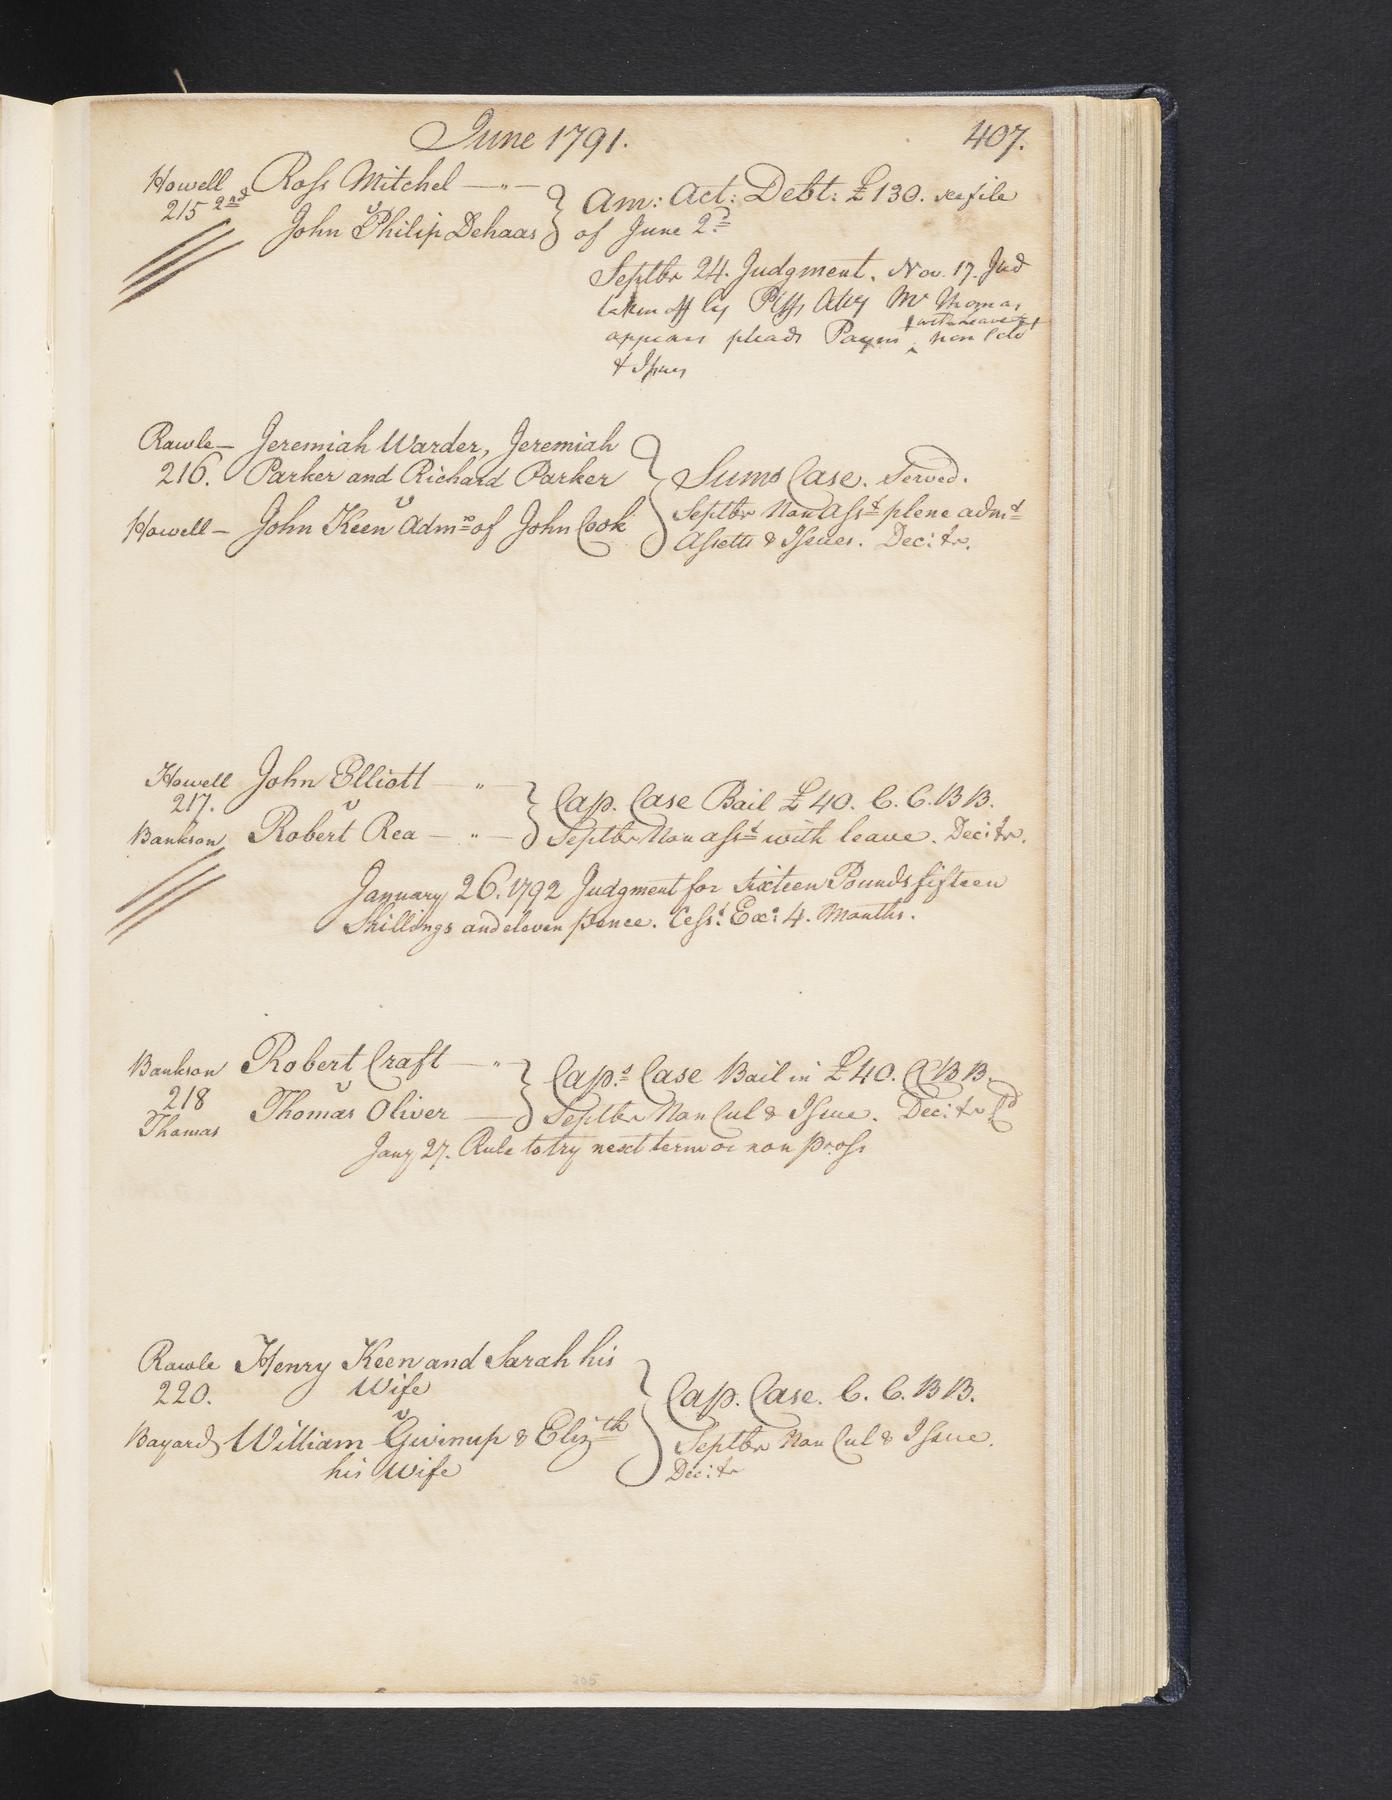 June 1791.
407.
Howell Ross Mitchel — " —
215 2nd v
John Philip Dehaas
Am: Act: Debt: £130. see file
of June 2d
Septbr 24. Judgment. Nov. 17. Jud
taken off by Plffs Atty Mr Thomas
appears pleads Paymt with leave & non
& Issues
Rawle — Jeremiah Warder, Jeremiah
216. Parker and Richard Parker
v
Howell — John Keen Admr of John Cook
Sums Case. Served.
Septbr Non Asst plene admt
Assetts & Issues. Dec: tr.
Howell John Elliott — " —
217. v
Bankson Robert Rea — " —
Cap. Case Bail £40. C. C. B B.
Septbr Non asst with leave. Dec: tr.
January 26. 1792 Judgment for Sixteen Pounds fifteen
Shillings and eleven pence. Cesst Exo 4. Months.
Bankson Robert Craft — " —
218 v
Thomas Thomas Oliver —
Caps Case Bail in £40. C B B.
Septbr Non Cul & Issue. Dec: tr
Jany 27. Rule to try next term or non Pross
Rawle Henry Keen and Sarah his
220. Wife
v
Bayard William Gwinnup & Elizth
his Wife
Cap. Case. C. C. B B.
Septbr Non Cul & Issue.
Dec: tr
205